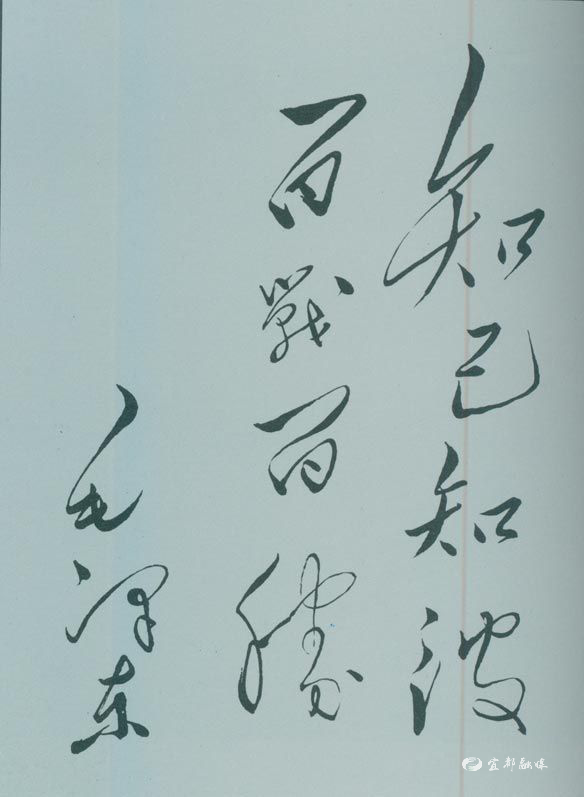 知己知彼
百戰百勝
毛泽东
宜都融媒